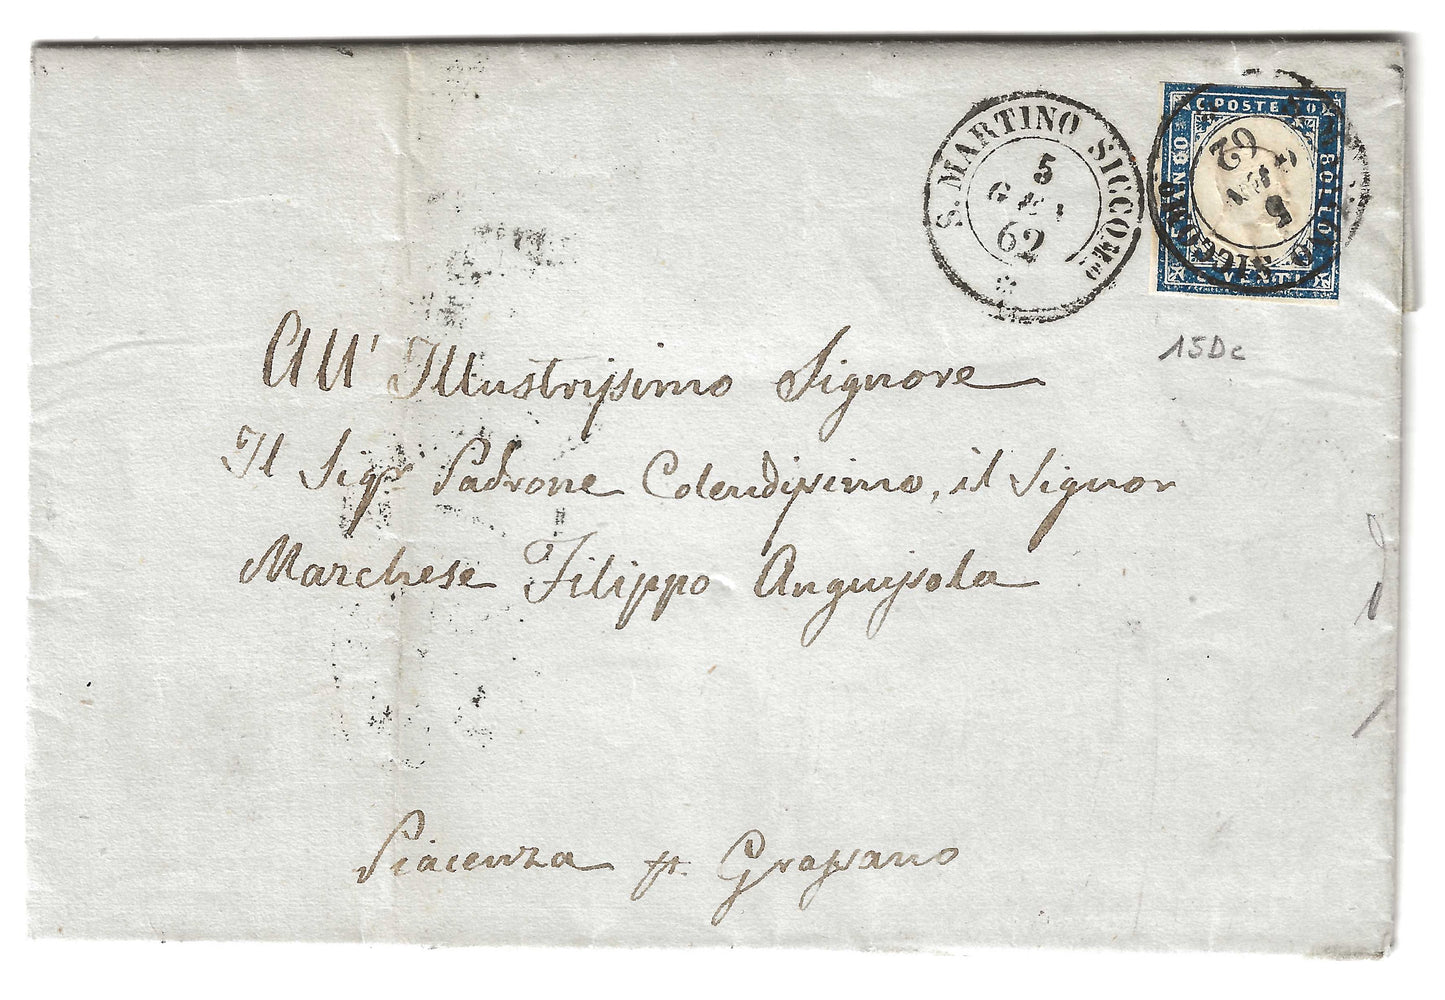 S. MARTINO SICCOMº
5
62
C. POSTE
BOLLO
C. VENTI
62
5
15Dc
All' Illustrissimo Signore
Il Sigr Padrone Colendissimo, il Signor
Marchese Filippo Anguissola
Piacenza pr. Grassano